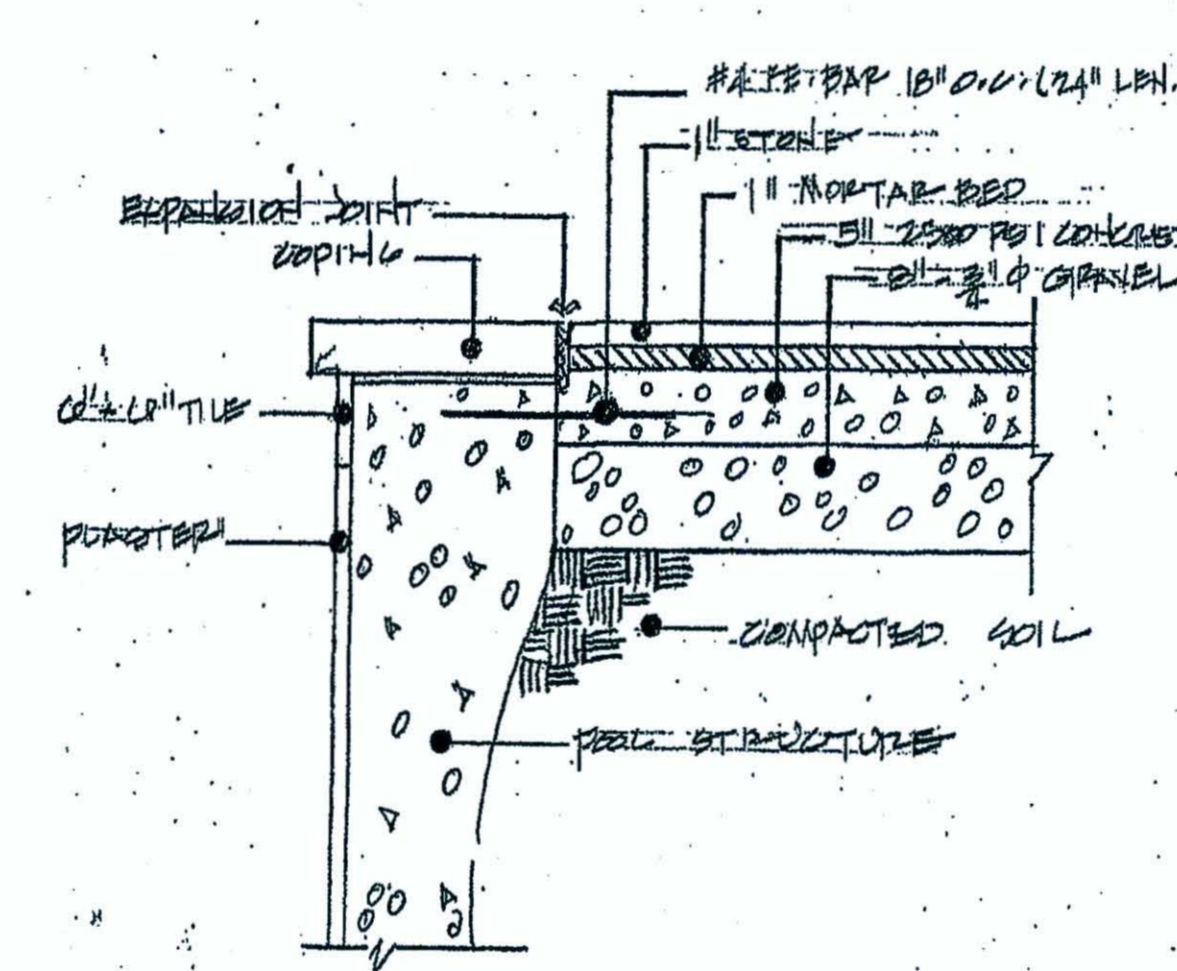 #4 RE-BAR 18" O.C. (24" LEN.
1" STONE
1" MORTAR BED
5" 2500 PSI CONCRE
8" - 3/4" Φ GRAVEL
EXPANSION JOINT
COPING
6" x 6" TILE
PLASTER
COMPACTED SOIL
POOL STRUCTURE